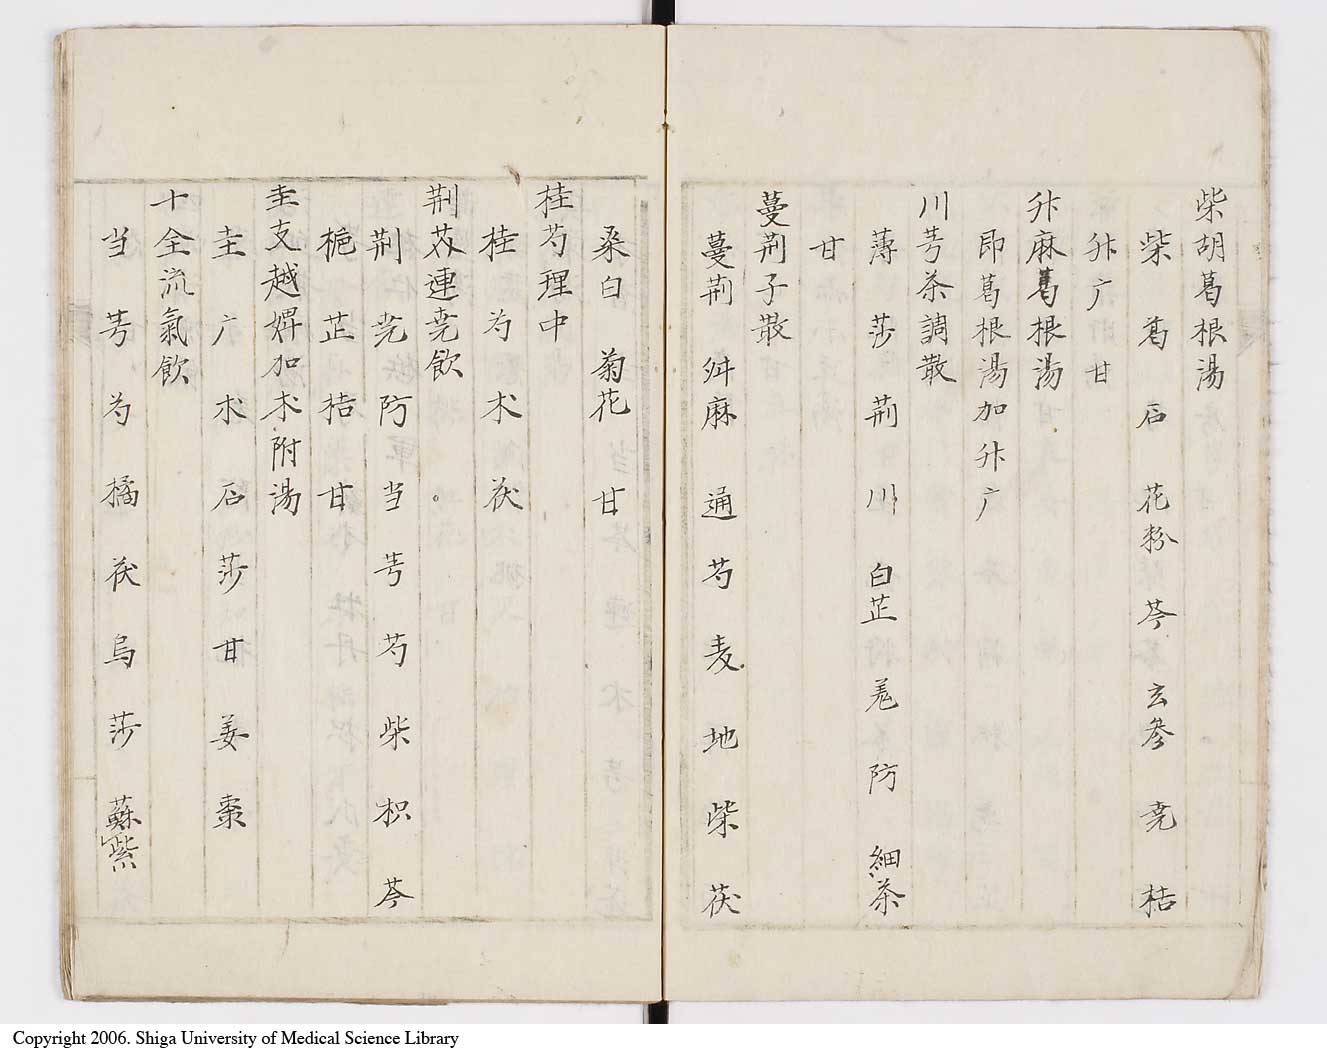 柴胡葛根湯
柴葛石花粉芩玄參尭桔
升广甘
升麻葛根湯
即葛根湯加升广
川芎茶調散
薄莎荆川白芷羌防細茶
甘
蔓荆子散
蔓荆舛麻通芍麦地柴茯
桑白菊花甘
桂芍理中
桂芍朮茯
荆芥連尭飲
荆尭防当芎芍柴枳芩
梔芷桔甘
圭支越婢加朮附湯
圭广朮石莎甘姜棗
十全流氣飲
当芎芍橘茯烏莎蘇紫
Copyright 2006. Shiga University of Medical Science Library